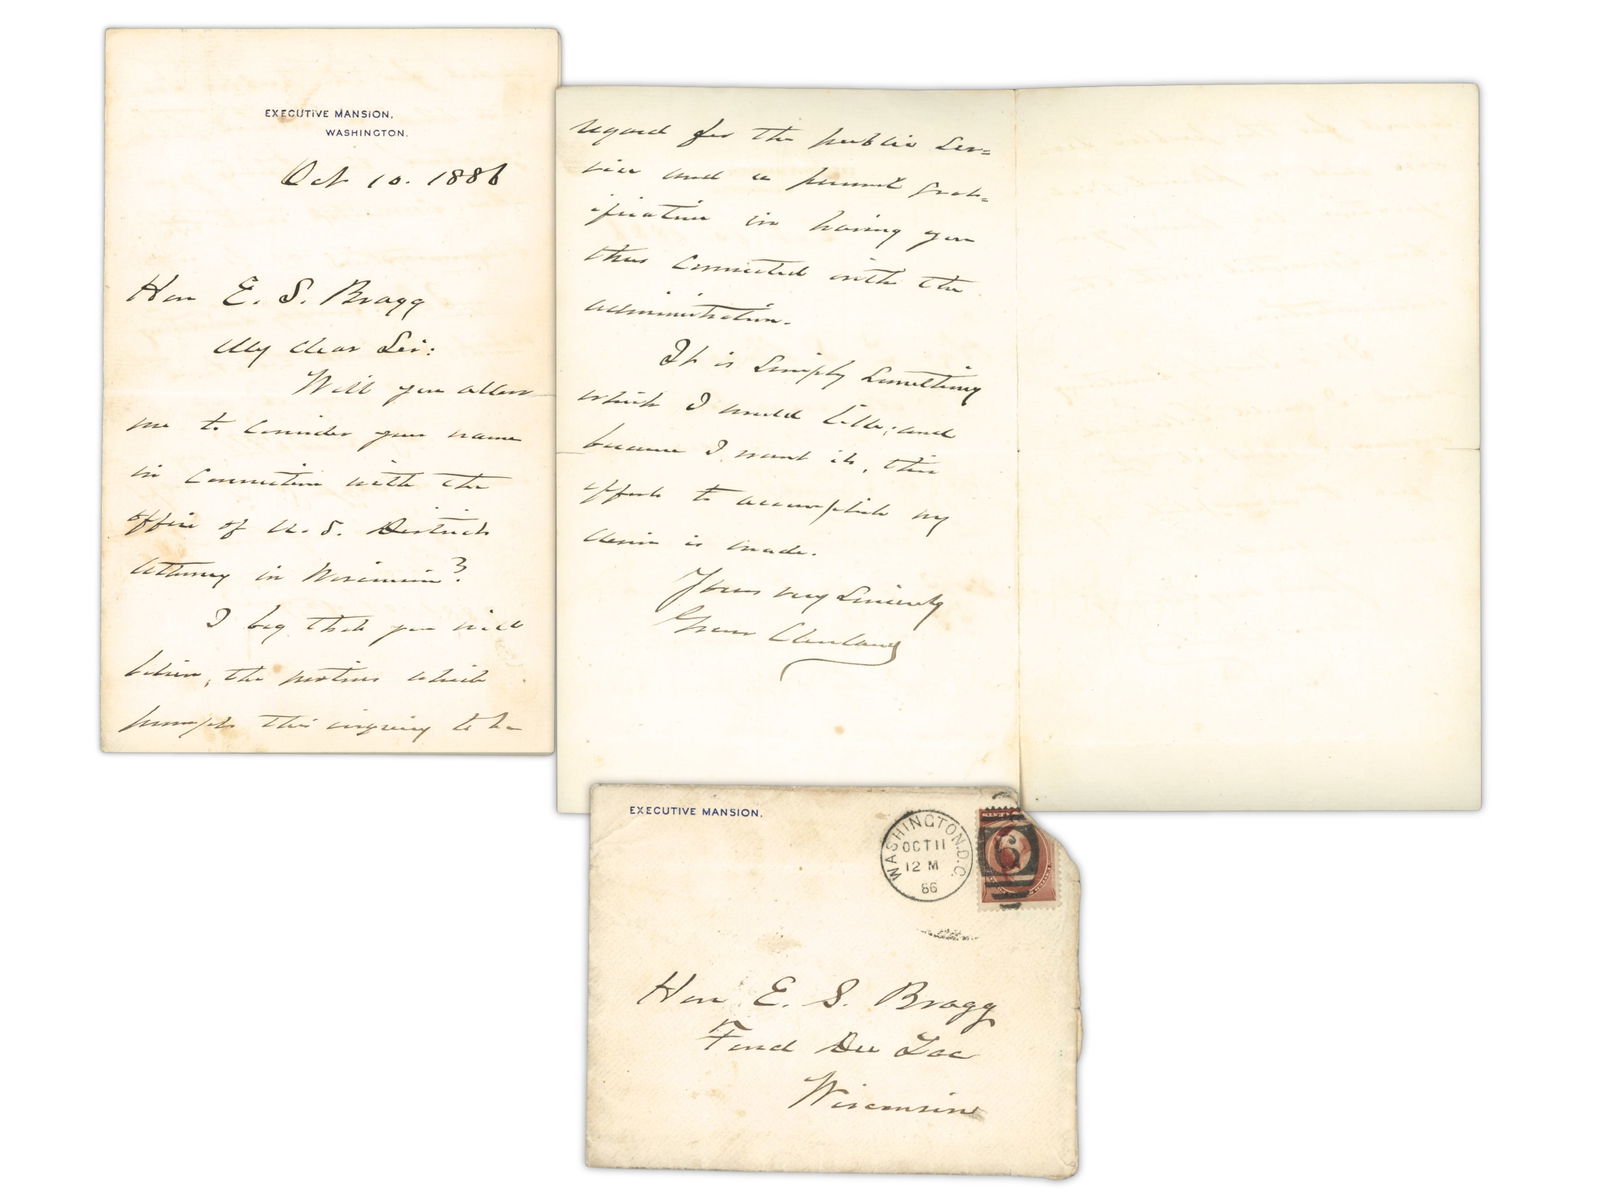 EXECUTIVE MANSION,
WASHINGTON.
Oct 10. 1886
Hon E. S. Bragg
My dear Sir:
Will you allow
me to consider your name
in connection with the
office of U. S. District
Attorney in Wisconsin?
I beg that you will
believe, the motives which
prompts this inquiry to be
regard for the public ser=
vice and a personal grat=
ification in having you
thus connected with the
administration.
It is simply something
which I would like; and
because I want it, this
effort to accomplish my
desire is made.
Yours very sincerely
Grover Cleveland
EXECUTIVE MANSION,
WASHINGTON, D.C.
OCT 11
12 M
86
6
Hon E. S. Bragg
Fond Du Lac
Wisconsin